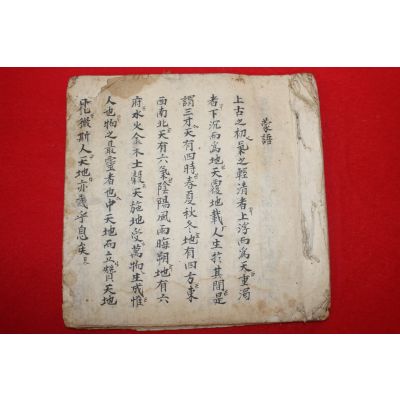 蒙語
上古之初氣之輕清者上浮而爲天重濁
者下沉而爲地天覆地載人生於其間是
謂三才天有四時春夏秋冬地有四方東
西南北天有六氣陰陽風雨晦朔地有六
府水火金木土糓天施地受萬物生成惟
人也物之最靈者也中天地而立賛天地
化微斯人天地亦幾乎息矣